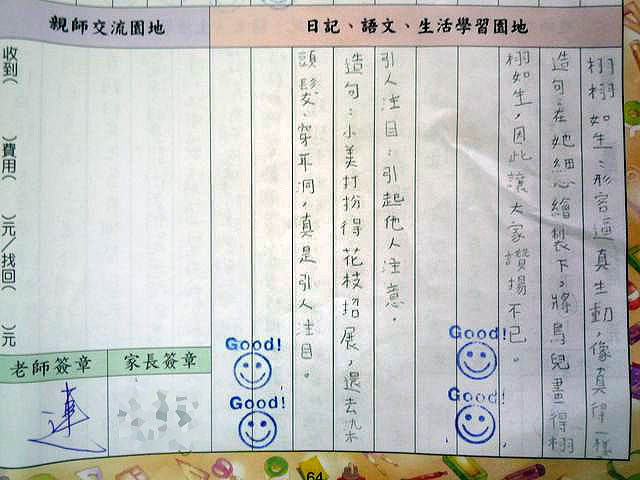 親師交流園地
日記、語文、生活學習園地
栩栩如生：形容逼真生動，像真得一樣
造句：在她細心繪製下，將鳥兒畫得栩
栩如生，因此讓大家讚揚不已。
引人注目：引起他人注意。
造句：小美打扮得花枝招展，還去染
頭髮、穿耳洞，真是引人注目。
Good!
Good!
Good!
Good!
收到(　　)費用(　　)元/找回(　　)元
老師簽章
家長簽章
64